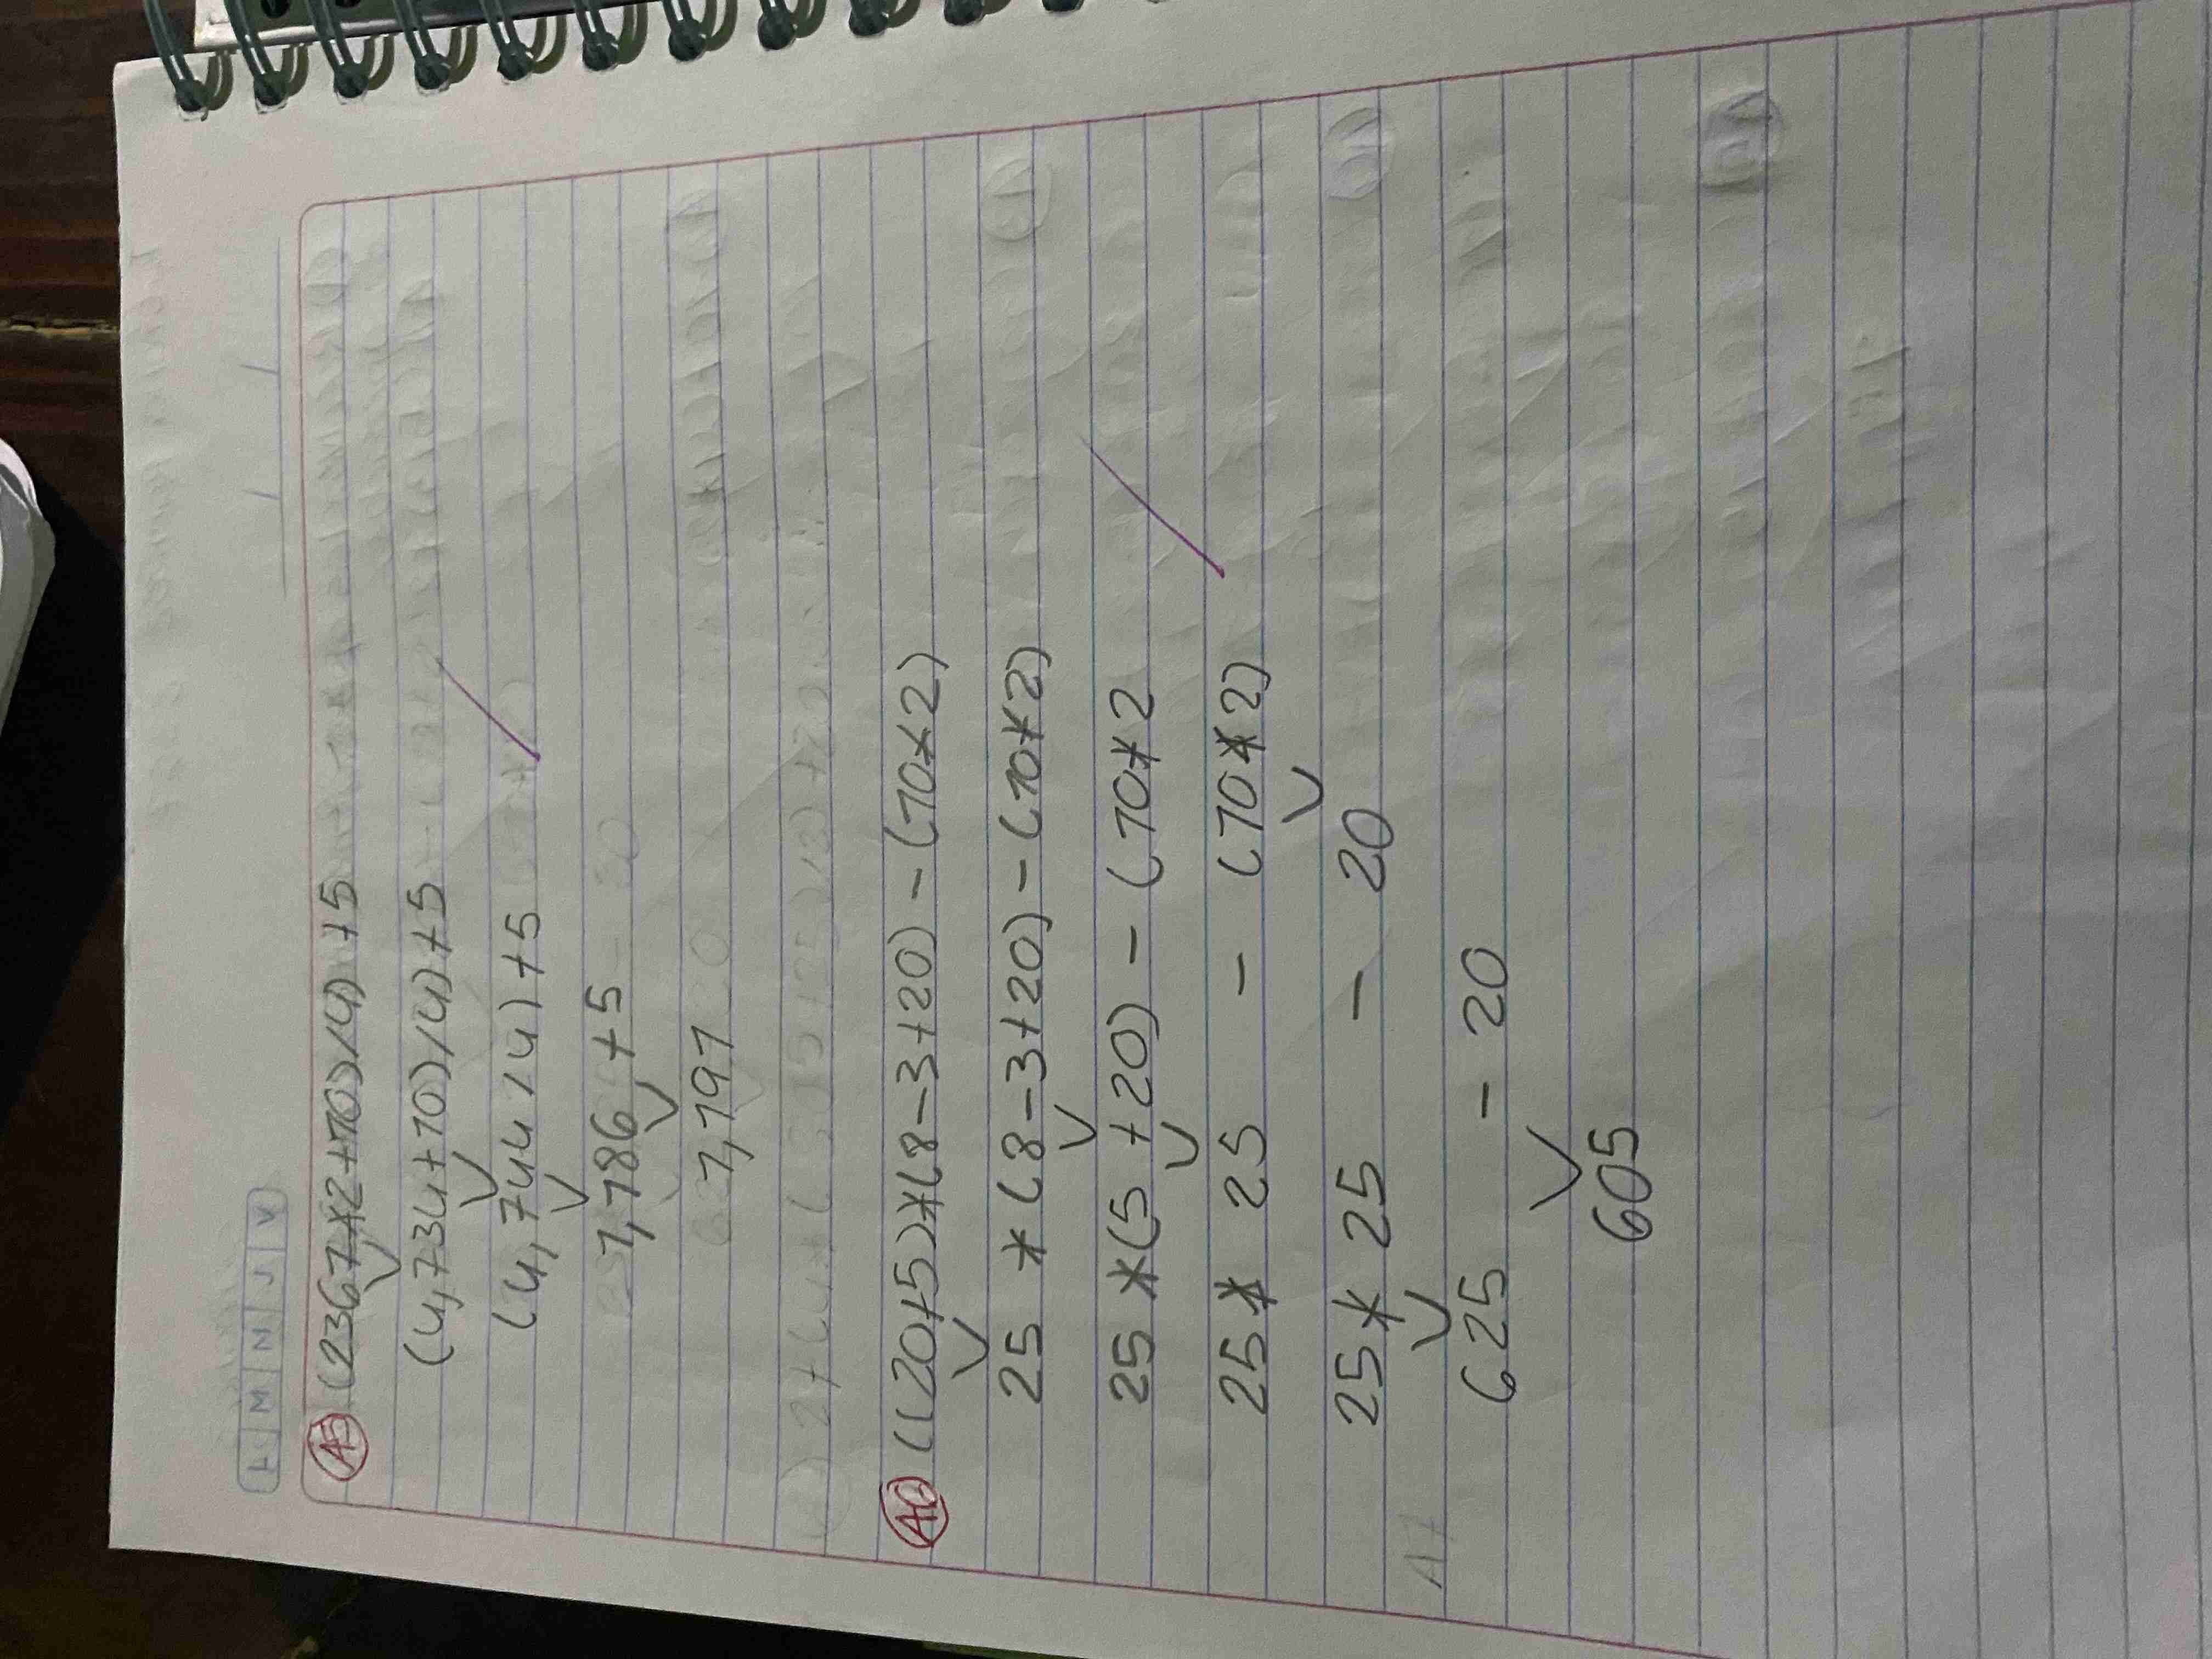 L M M J V
A5 (2367*2+10)/4)+5
(4,734+10)/4)+5
(4,744/4)+5
1,186+5
1,191
A6 ((20+5)*(8-3+20)-(10*2)
25 *(8-3+20)-(10*2)
25 *(5+20)-(10*2
25* 25 - (10*2)
25* 25 - 20
625 - 20
605
A7